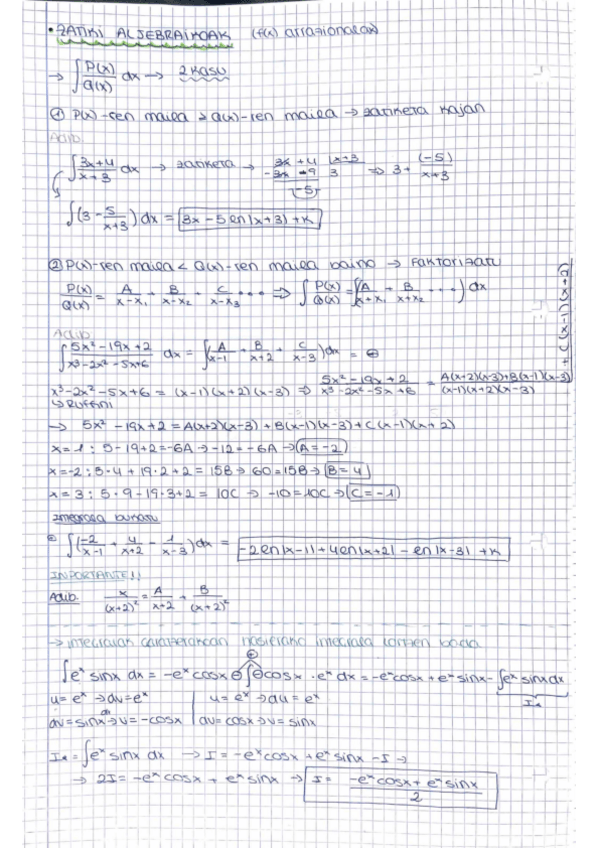 • ZATIKI ALJEBRAIKOAK (f(x) arrazionalak)
→ ∫ P(x)/Q(x) dx → 2 kasu
① P(x)-ren maila ≥ Q(x)-ren maila → zatiketa kajan
Adib.
∫ (3x+4)/(x+3) dx → zatiketa → 3x + 4 | x+3
-3x - 9   3   ⇒ 3 + (-5)/(x+3)
(-5)
∫ (3 - 5/(x+3)) dx = 3x - 5 ln|x+3| + K
② P(x)-ren maila < Q(x)-ren maila baino → Faktorizatu
P(x)/Q(x) = A/(x-x₁) + B/(x-x₂) + C/(x-x₃) ... ⇒ ∫ P(x)/Q(x) = ∫ (A/(x+x₁) + B/(x+x₂) ...) dx
Adib.
∫ (5x²-19x+2)/(x³-2x²-5x+6) dx = ∫ (A/(x-1) + B/(x+2) + C/(x-3)) dx = ⊖
x³-2x²-5x+6 = (x-1)(x+2)(x-3) ⇒ (5x²-19x+2)/(x³-2x²-5x+6) = (A(x+2)(x-3)+B(x-1)(x-3)+C(x-1)(x+2))/((x-1)(x+2)(x-3))
↳ RUFFINI
→ 5x²-19x+2 = A(x+2)(x-3) + B(x-1)(x-3) + C(x-1)(x+2)
x=1 : 5-19+2=-6A → -12=-6A → A=-2
x=-2 : 5·4 + 19·2+2 = 15B → 60=15B → B=4
x=3 : 5·9-19·3+2 = 10C → -10=10C → C=-1
Integrala bukatu
∫ (-2/(x-1) + 4/(x+2) - 1/(x-3)) dx = -2 ln|x-1| + 4 ln|x+2| - ln|x-3| + K
INPORTANTE!!
Adib. x/(x+2)² = A/(x+2) + B/(x+2)²
→ integralak garatzerakoan hasierako integrala lortzen bada
∫ eˣ sinx dx = -eˣ cosx ⊖ ∫ ⊖ cosx · eˣ dx = -eˣ cosx + eˣ sinx - ∫ eˣ sinx dx
u = eˣ → du = eˣ | u = eˣ → du = eˣ
dv = sinx dx → v = -cosx | dv = cosx → v = sinx
I₁ = ∫ eˣ sinx dx → I = -eˣ cosx + eˣ sinx - I →
→ 2I = -eˣ cosx + eˣ sinx → I = (-eˣ cosx + eˣ sinx)/2